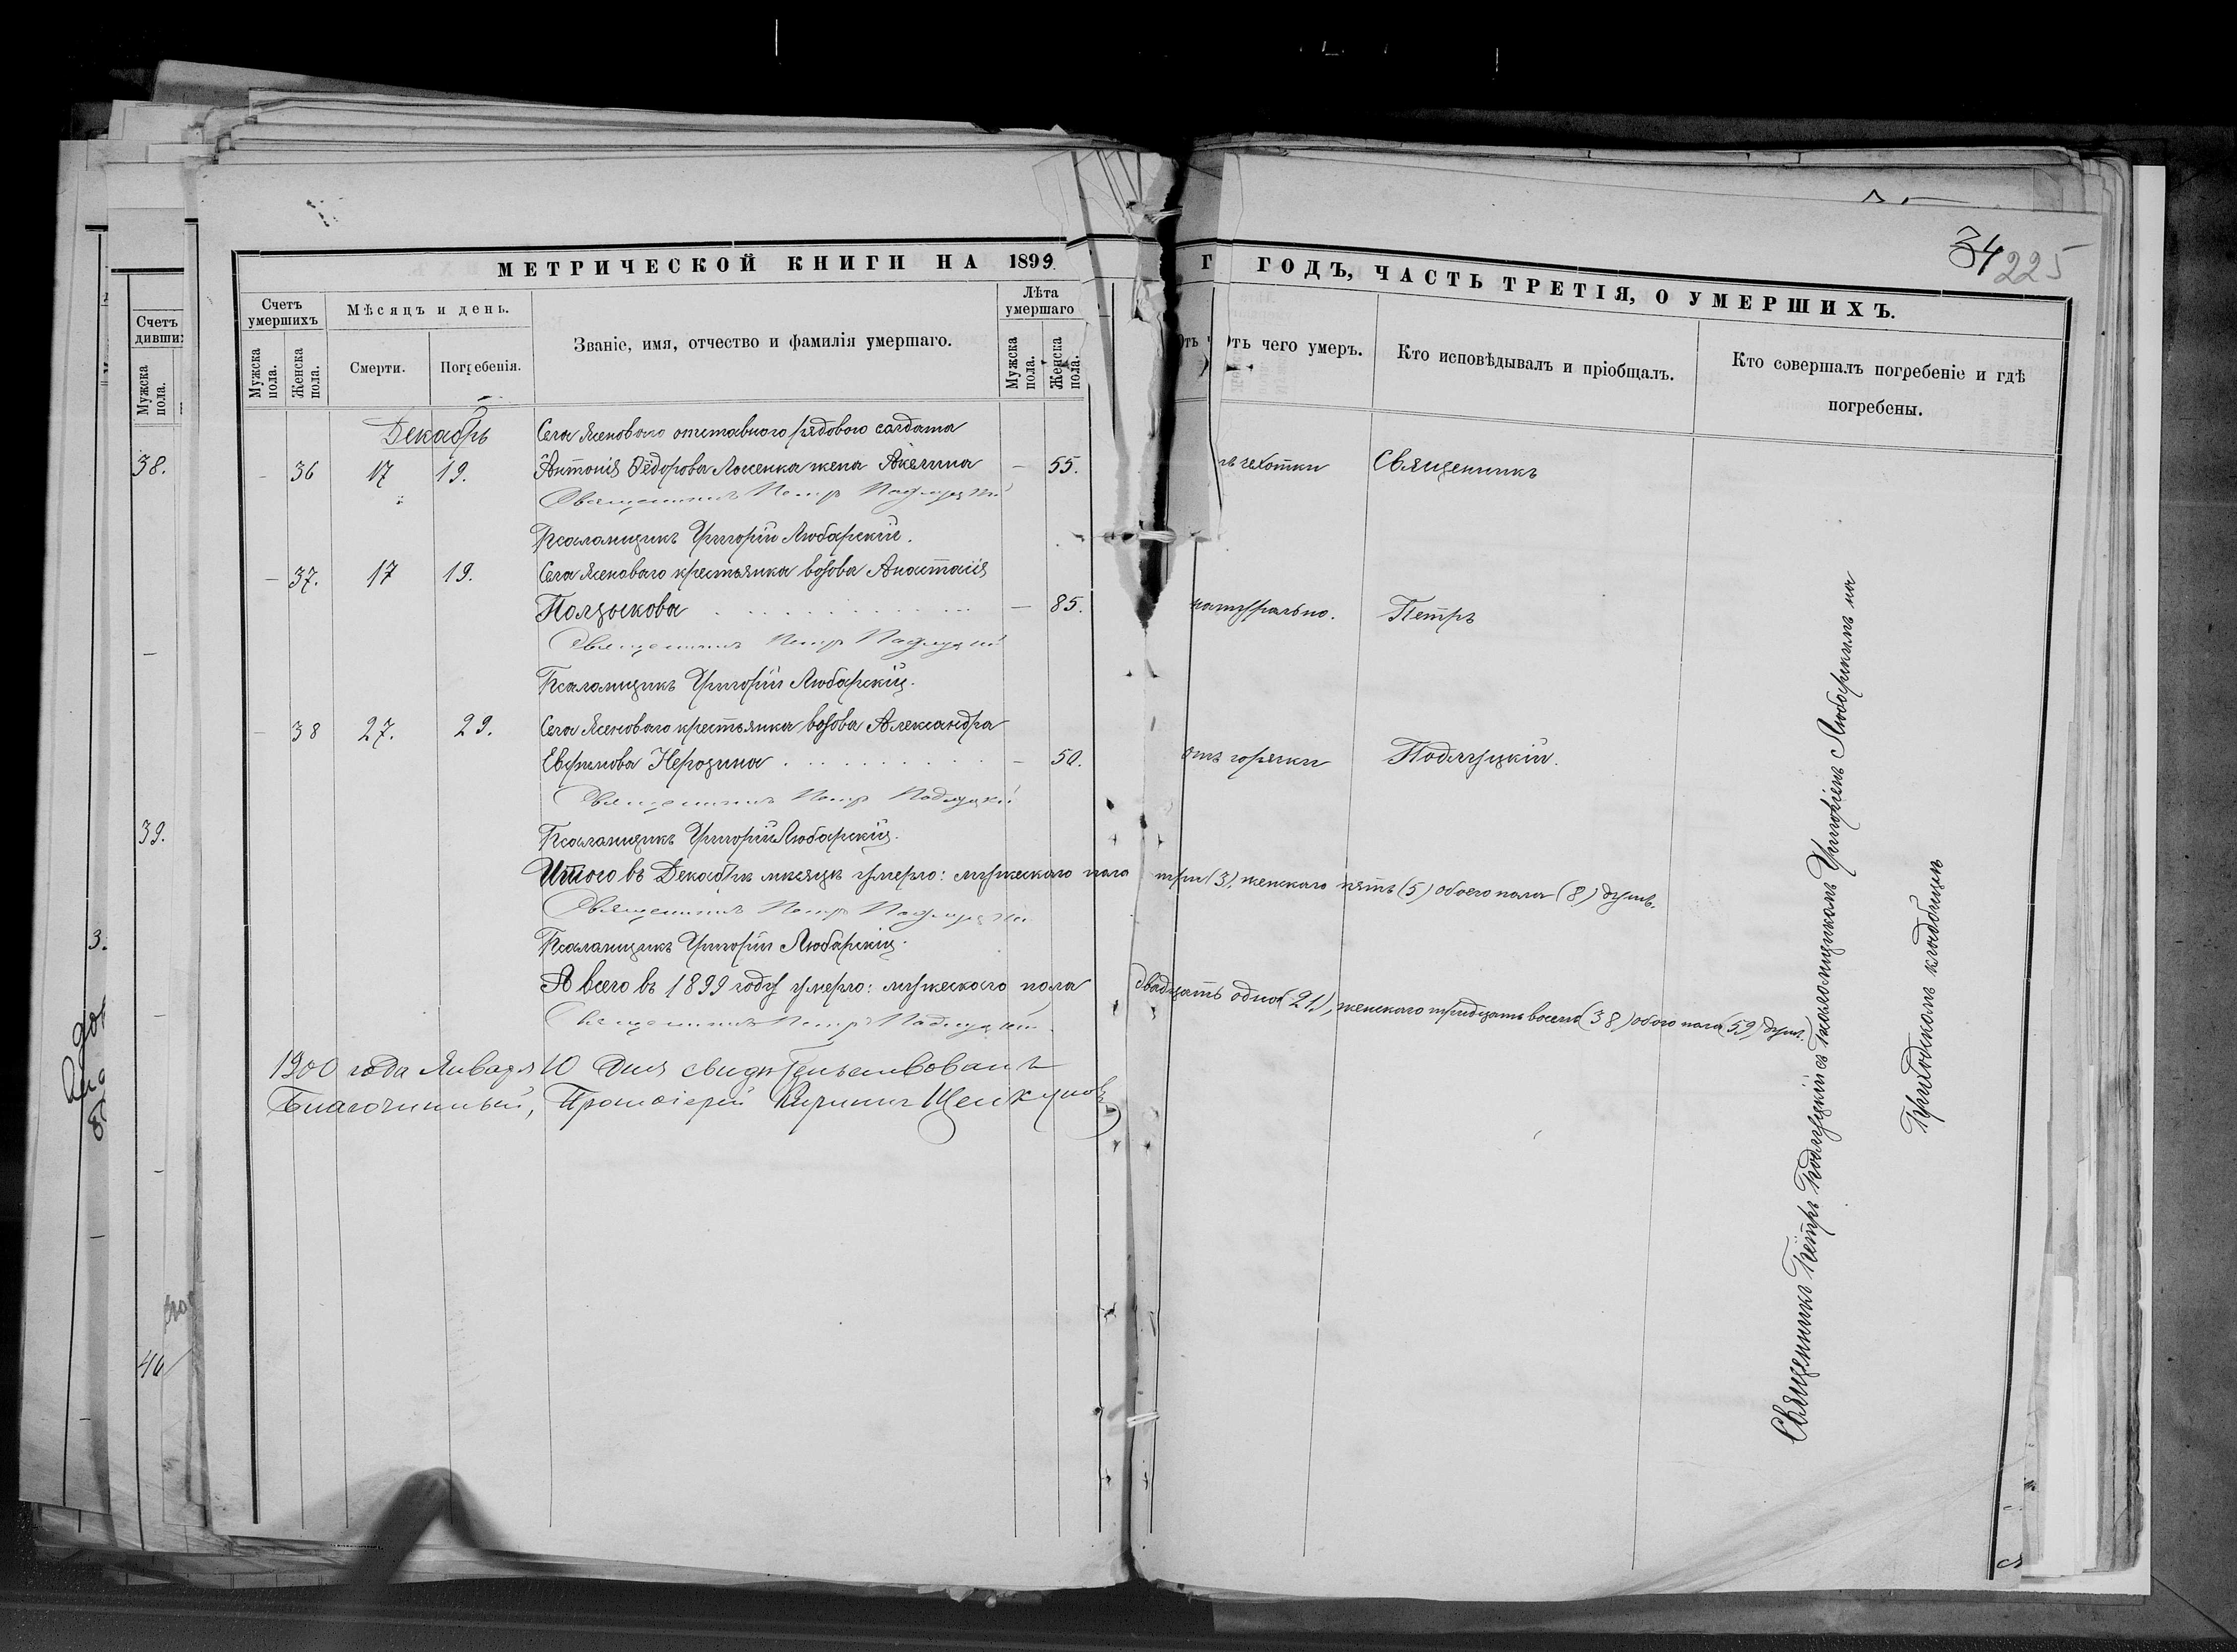 34 225
МЕТРИЧЕСКОЙ КНИГИ НА 1899
ГОДЪ, ЧАСТЬ ТРЕТІЯ, О УМЕРШИХЪ.
Счетъ умершихъ
Мѣсяцъ и день.
Званіе, имя, отчество и фамилія умершаго.
Лѣта умершаго
Мужска пола.
Женска пола.
Смерти.
Погребенія.
Мужска пола.
Женска пола.
Отъ чего умеръ.
Кто исповѣдывалъ и пріобщалъ.
Кто совершалъ погребеніе и гдѣ
погребены.
Декабрь
Села Ясеноваго отставного рядового салдата
- 36 17 19. Антонія Ѳёдорова жена Акелина - 55. чехотки Священникъ
Священникъ Петръ Подлуцкій
Псаломщикъ Григорій Любарскій.
- 37. 17 19. Села Ясеноваго крестьянка вдова Анастасія
- 85. натурально. Петръ
Священникъ Петръ Подлуцкій
Псаломщикъ Григорій Любарскій.
- 38 27. 29. Села Ясеноваго крестьянка вдова Александра
Евфимова - 50. отъ горячки Подлуцкій.
Священникъ Петръ Подлуцкій
Псаломщикъ Григорій Любарскій.
Итого въ Декабрѣ мѣсяцѣ умерло: мужескаго пола три (3), женскаго пять (5) обоего пола (8) душъ.
Священникъ Петръ Подлуцкій
Псаломщикъ Григорій Любарскій.
А всего въ 1899 году умерло: мужескаго пола двадцать одно (21), женскаго тридцать восемь (38) обоего пола (59) душъ.
Священникъ Петръ Подлуцкій
1900 года Января 10 дня свидѣтельствовалъ
Благочинный, Протоіерей Кириллъ
Священникъ Петръ Подлуцкій съ псаломщикомъ Григоріемъ Любарскимъ на
Приходскомъ кладбищѣ
Счетъ
Мужска пола.
38.
39.
40
3.